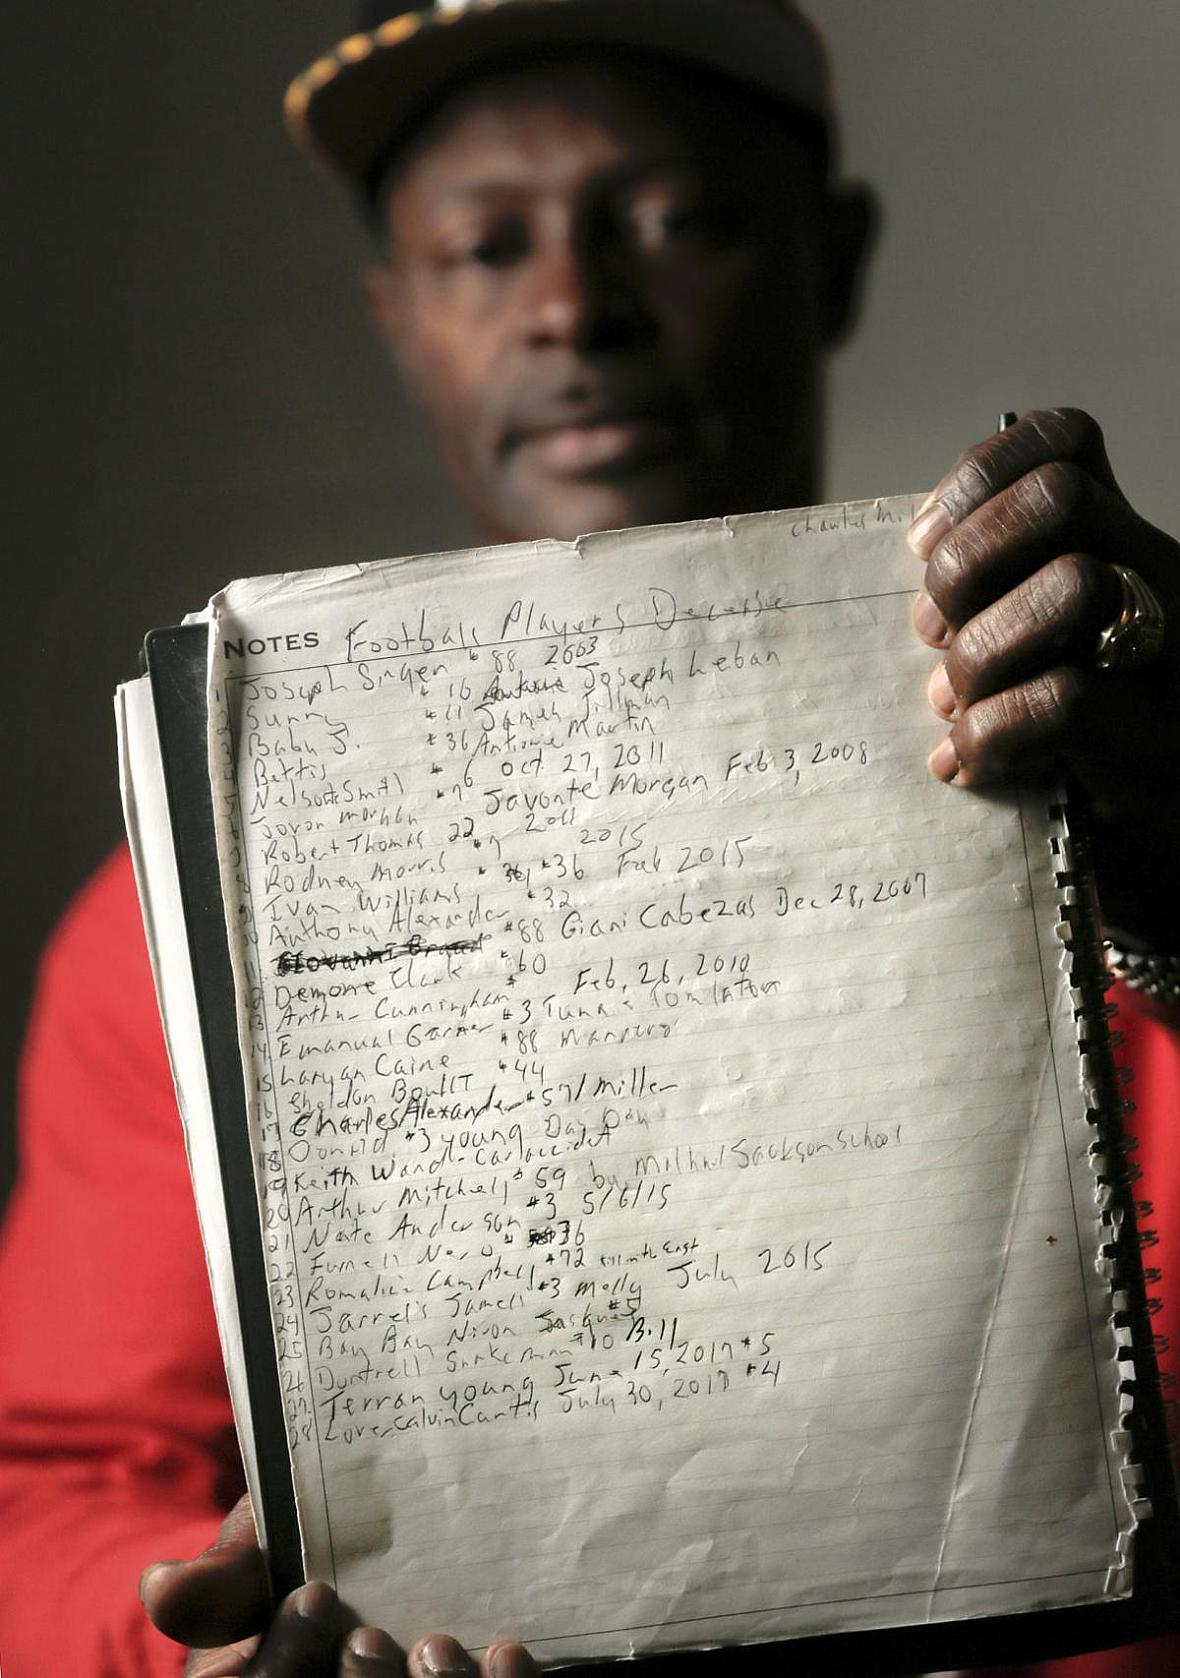 NOTES Football Players
1 Joseph Singer #88, 2003
Sunny #16 Joseph Leban
Baby J. #11 James
Bettis #36 Antione Martin
Nelson Smith #6 Oct 27, 2011
Jovon Morgan #76 Javonte Morgan Feb 3, 2008
Robert Thomas 22 2011
8 Rodney Morris #7 2015
9 Ivan Williams #36 Feb 2015
10 Anthony Alexander #32
#88 Giani Cabezas Dec 28, 2007
Demone Clark #60
13 Arthur Cunningham # Feb, 26, 2010
14 Emanual Garner #3
15 Laryan Caine #88
16 Sheldon BoullT #44
17 Charles Alexander #57/Miller
18 Donald #3 young Day Day
19 Keith Ward - Car accident
20 Arthur Mitchell #59 by School
21 Nate Anderson #3 5/6/15
22 #36
23 Campbell #72
24 Jarrel's Jamell #3 Melly July 2015
25 Bay Bay Nixon #5
26 Dontrell Snakeman #10 Bill
27. Terran young June 15, 2017 #5
28 Love, Calvin Curtis July 30, 2017 #4